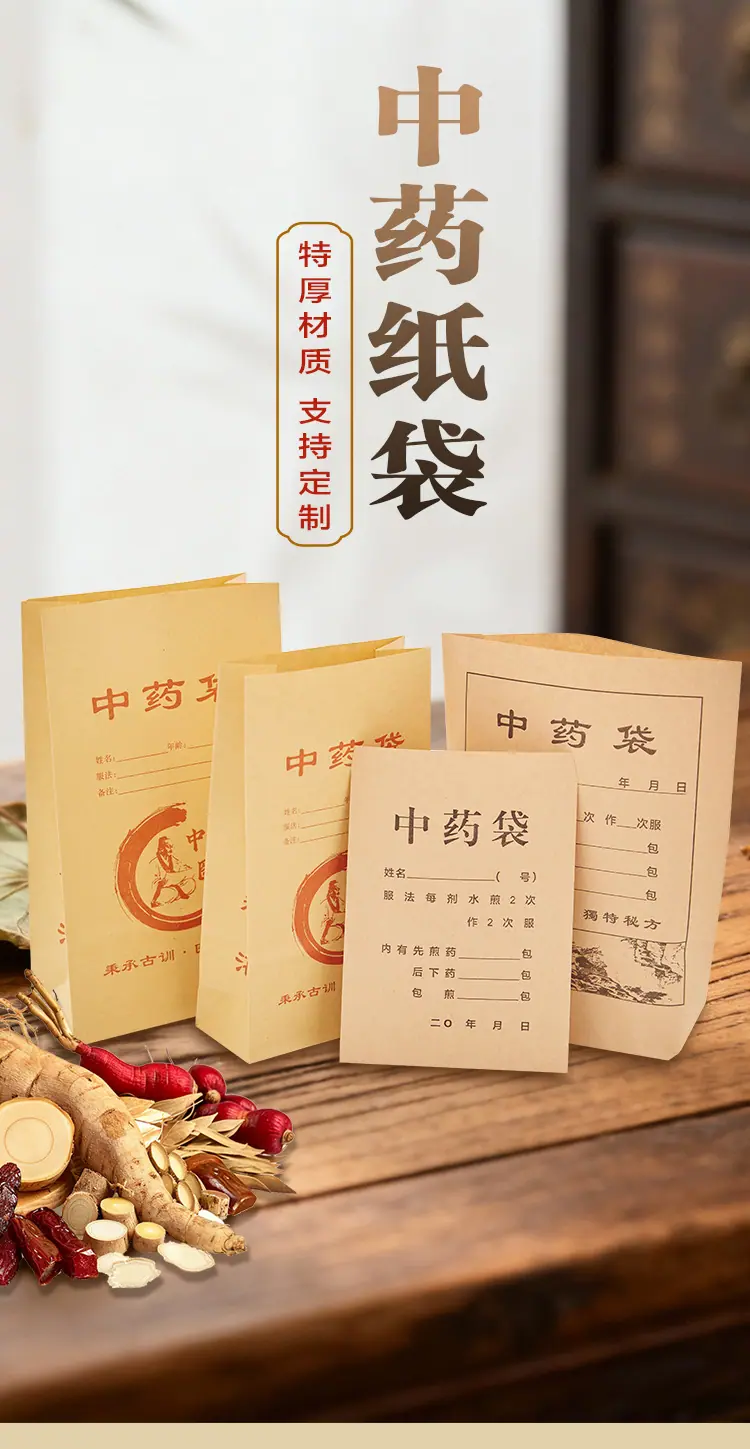 中药纸袋
特厚材质 支持定制
中药袋
姓名:________年龄:
服法:
备注:
中
秉承古训·
中药袋
姓名:
服法:
备注:
秉承古训
中药袋
姓名____________( 号)
服法每剂水煎2次
作2次服
内有先煎药________包
后下药________包
包煎________包
二〇 年 月 日
中药袋
年 月 日
次 作__次服
包
包
包
獨特秘方